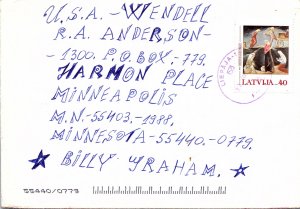 U.S.A.-WENDELL
R.A. ANDERSON-
-1300. P.O. BOX.-779.
HARMON PLACE
MINNEAPOLIS
M.N.-55403-1988,
MINNESOTA-55440.-0779.
BILLY GRAHAM.
LATVIJA 40
55440/0779